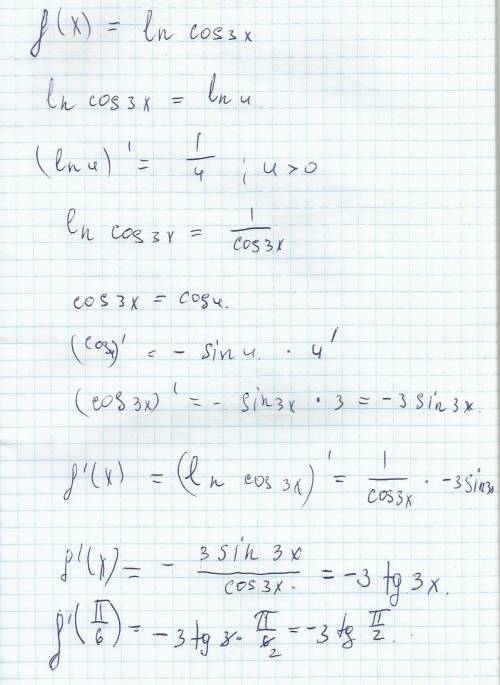 f(x) = ln cos3x
ln cos3x = ln u.
(ln u)' = 1/u ; u>0
ln cos3x = 1/cos3x
cos3x = cosu.
(cosu)' = - sin u. · u'
(cos3x)' = - sin3x · 3 = -3 sin 3x.
f'(x) = (ln cos3x)' = 1/cos3x · -3sin3x
f'(x) = - 3 sin 3x/cos3x. = -3 tg 3x.
f'(π/6) = -3 tg 3 · π/6 2 = -3 tg π/2.